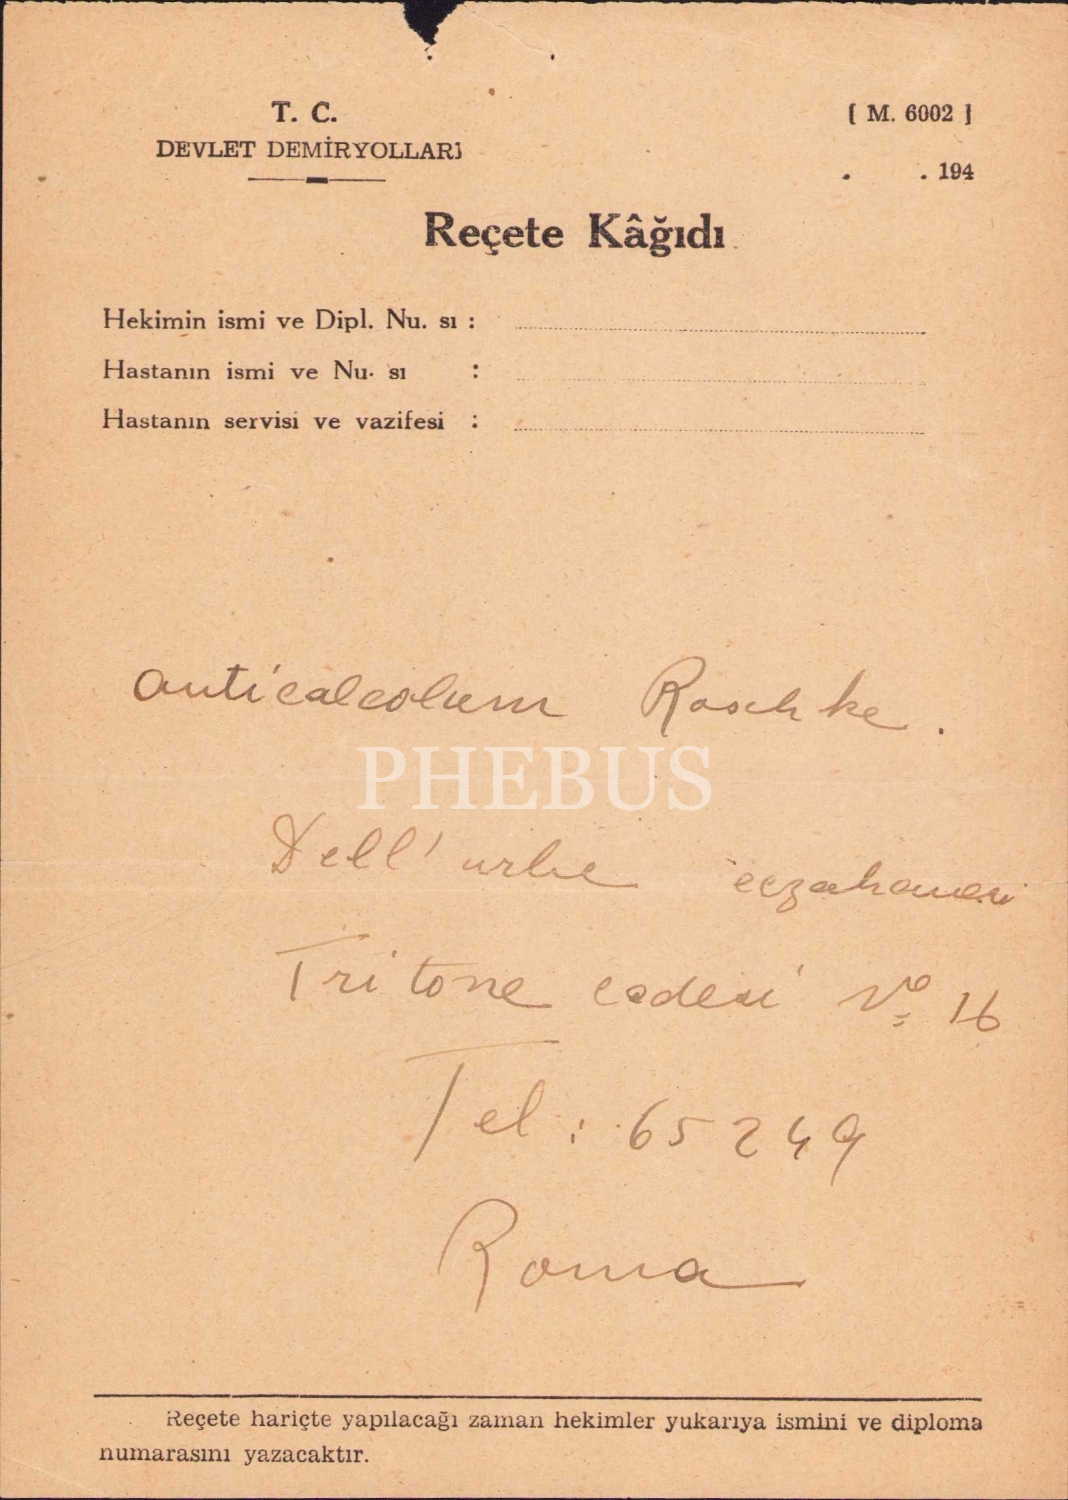 T. C.
[ M. 6002 ]
DEVLET DEMİRYOLLARI
. . 194
Reçete Kâğıdı
Hekimin ismi ve Dipl. Nu. sı :
Hastanın ismi ve Nu. sı :
Hastanın servisi ve vazifesi :
Anticalcolum Roschke.
PHEBUS
Dell' urbe eczahanesi
Tritone cadesi No 16
Tel : 65249
Roma
Reçete hariçte yapılacağı zaman hekimler yukarıya ismini ve diploma
numarasını yazacaktır.